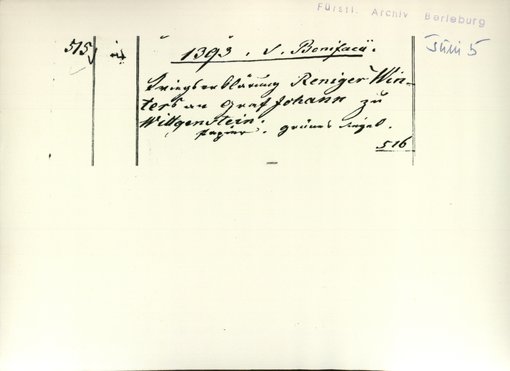 Fürstl. Archiv Berleburg
515
1393. s. Bonifacii.
Juni 5
Kriegserklärung Reniger Win-
ters an Graf Johann zu
Wittgenstein.
Papier. grünes Siegel.
516